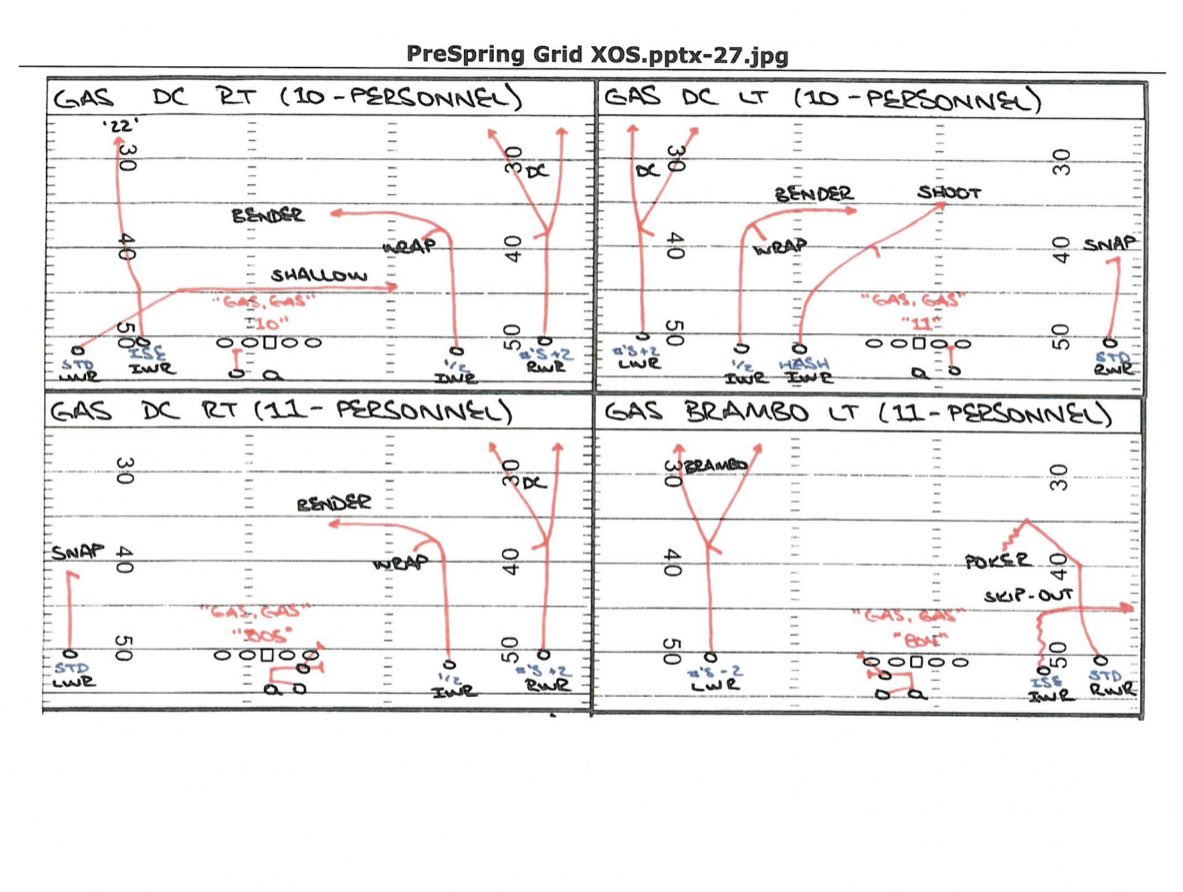 PreSpring Grid XOS.pptx-27.jpg
GAS DC RT (10-PERSONNEL)
'22'
30
30
DC
BENDER
40
WRAP
40
SHALLOW
"GAS, GAS"
"10"
50
50
STD
LWR
ISE
IWR
1/2
IWR
#'S+2
RWR
GAS DC LT (10-PERSONNEL)
DC
30
30
BENDER
SHOOT
40
WRAP
40
SNAP
"GAS, GAS"
"11"
50
50
#'S+2
LWR
1/2
IWR
HASH
IWR
STD
RWR
GAS DC RT (11-PERSONNEL)
30
30
DC
BENDER
SNAP
40
WRAP
40
"GAS, GAS"
"805"
50
50
STD
LWR
1/2
IWR
#'S+2
RWR
GAS BRAMBO LT (11-PERSONNEL)
30
BRAMBO
30
40
POKER
40
SKIP-OUT
"GAS, GAS"
"804"
50
50
#'S-2
LWR
ISE
IWR
STD
RWR